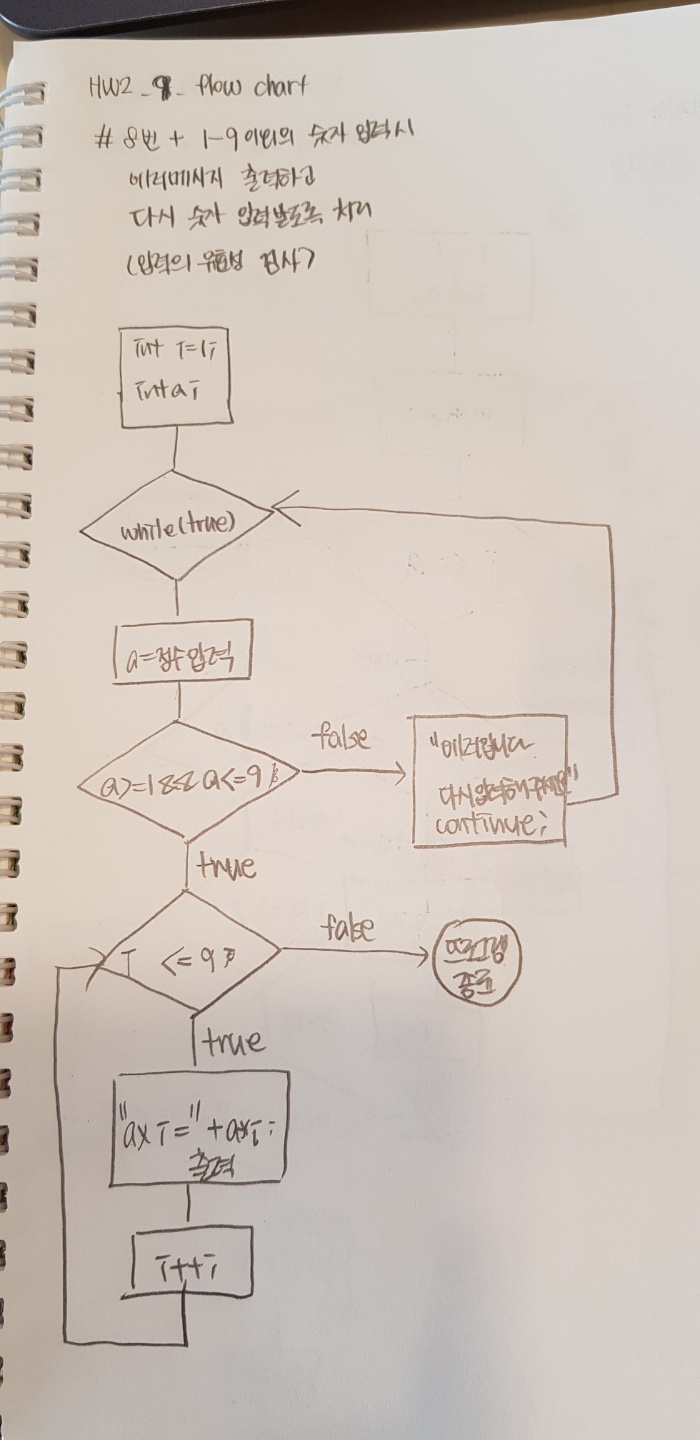 HW2_9_ flow chart
# 8번 + 1-9 이외의 숫자 입력시
에러메시지 출력하고
다시 숫자 입력받도록 처리
(입력의 유효성 검사)
int i=1;
int a;
while(true)
a=정수입력
a>=1 && a<=9
false
"에러입니다
다시입력해주세요"
continue;
true
i <= 9
false
프로그램
종료
true
"a x i =" + a*i;
출력
i++;